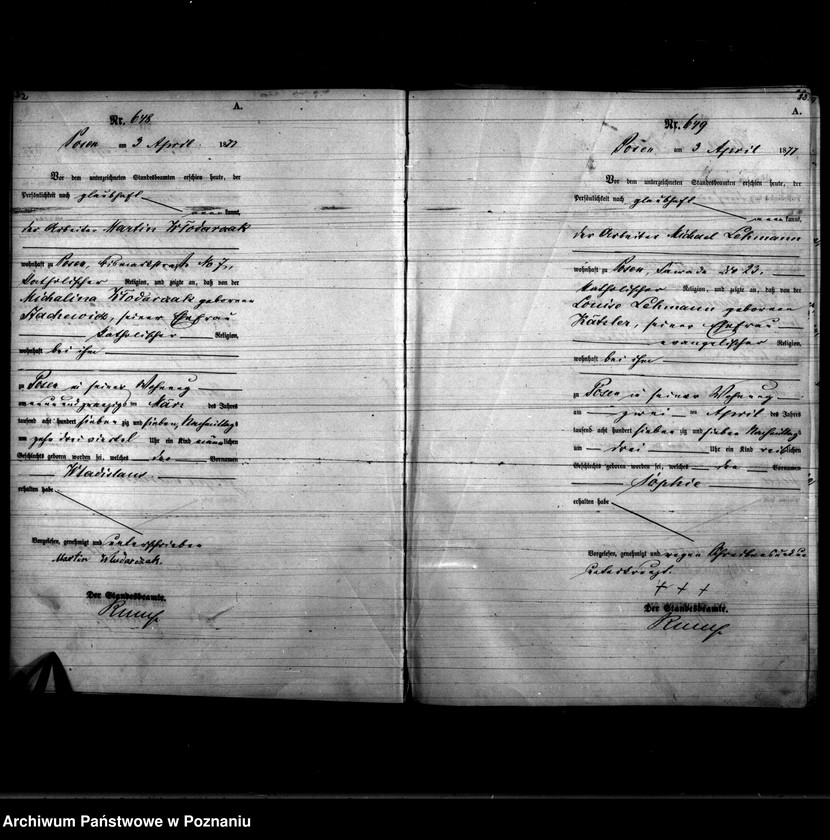 A.
Nr. 648
Posen am 3 April 1877
Vor dem unterzeichneten Standesbeamten erschien heute, der
Persönlichkeit nach glaubhaft
kannt,
der Arbeiter Martin Włodarczak
wohnhaft zu Posen, No 7,
katholischer Religion, und zeigte an, daß von der
Michalina Włodarczak geborenen
Stachowiak, seiner Ehefrau
katholischer Religion,
wohnhaft bei ihm
zu Posen in seiner Wohnung
am neunundzwanzigsten März des Jahres
tausend acht hundert siebenzig und sieben, Nachmittags
um drei viertel Uhr ein Kind männlichen
Geschlechts geboren worden sei, welches den Vornamen
Wladislaus
erhalten habe
Vorgelesen, genehmigt und unterschrieben
Martin Włodarczak.
Der Standesbeamte.
A.
Nr. 649
Posen am 3 April 1877
Vor dem unterzeichneten Standesbeamten erschien heute, der
Persönlichkeit nach glaubhaft
kannt,
der Arbeiter Michael Lehmann
wohnhaft zu Posen, No 23.
katholischer Religion, und zeigte an, daß von der
Louise Lehmann geborenen
seiner Ehefrau
evangelischer Religion,
wohnhaft bei ihm
zu Posen in seiner Wohnung
am zwei ten April des Jahres
tausend acht hundert siebenzig und sieben Nachmittags
um drei Uhr ein Kind weiblichen
Geschlechts geboren worden sei, welches den Vornamen
Sophie
erhalten habe
Vorgelesen, genehmigt und wegen Schreibensunkunde
unterkreuzt.
+ + +
Der Standesbeamte.
Archiwum Państwowe w Poznaniu